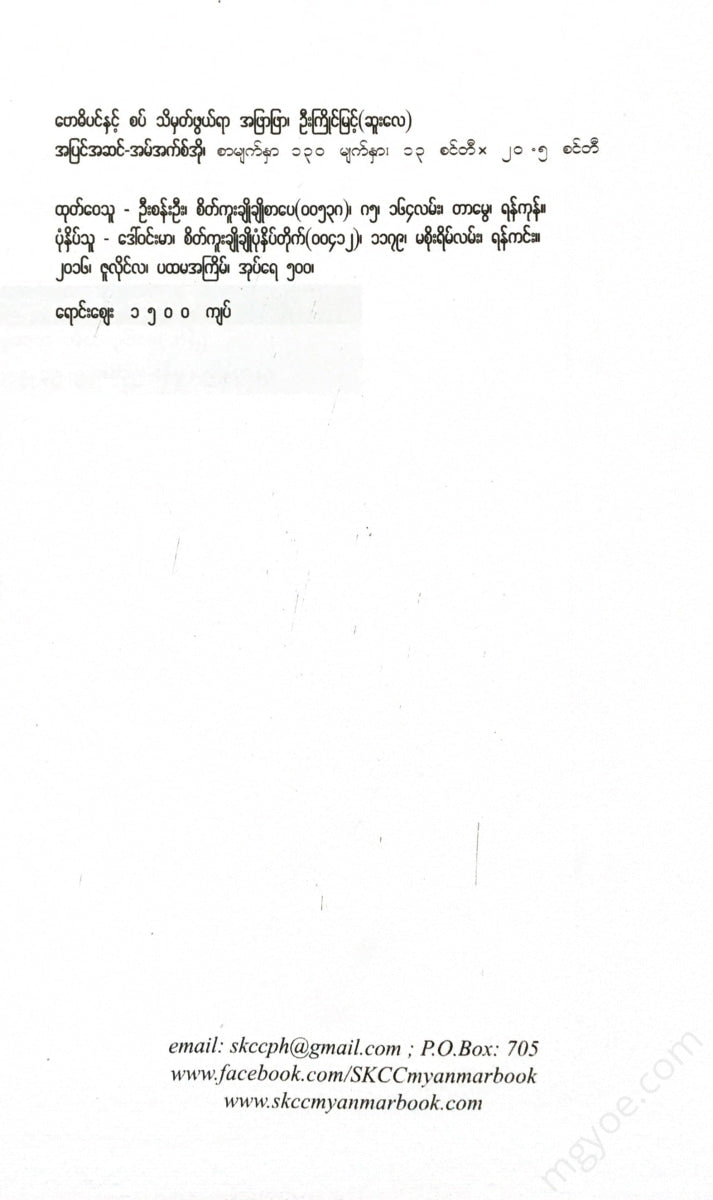 ဗောဓိပင်နှင့် စပ် သိမှတ်ဖွယ်ရာ အဖြာဖြာ၊ ဦးကြိုင်မြင့်(ဆူးလေ)
အပြင်အဆင်-အမ်အက်စ်အို၊ စာမျက်နှာ ၁၃၀ မျက်နှာ၊ ၁၃ စင်တီ× ၂၀.၅ စင်တီ
ထုတ်ဝေသူ - ဦးစန်းဦး၊ စိတ်ကူးချိုချိုစာပေ(၀၀၅၃၈)၊ ဂ၅၊ ၁၆၄လမ်း၊ တာမွေ၊ ရန်ကုန်။
ပုံနှိပ်သူ - ဒေါ်ဝင်းမာ၊ စိတ်ကူးချိုချိုပုံနှိပ်တိုက်(၀၀၄၁၂)၊ ၁၁၇၉၊ မစိုးရိမ်လမ်း၊ ရန်ကင်း။
၂၀၁၆၊ ဇူလိုင်လ၊ ပထမအကြိမ်၊ အုပ်ရေ ၅၀၀၊
ရောင်းဈေး ၁ ၅ ၀ ၀ ကျပ်
email: skccph@gmail.com ; P.O.Box: 705
www.facebook.com/SKCCmyanmarbook
www.skccmyanmarbook.com
mgyoe.com